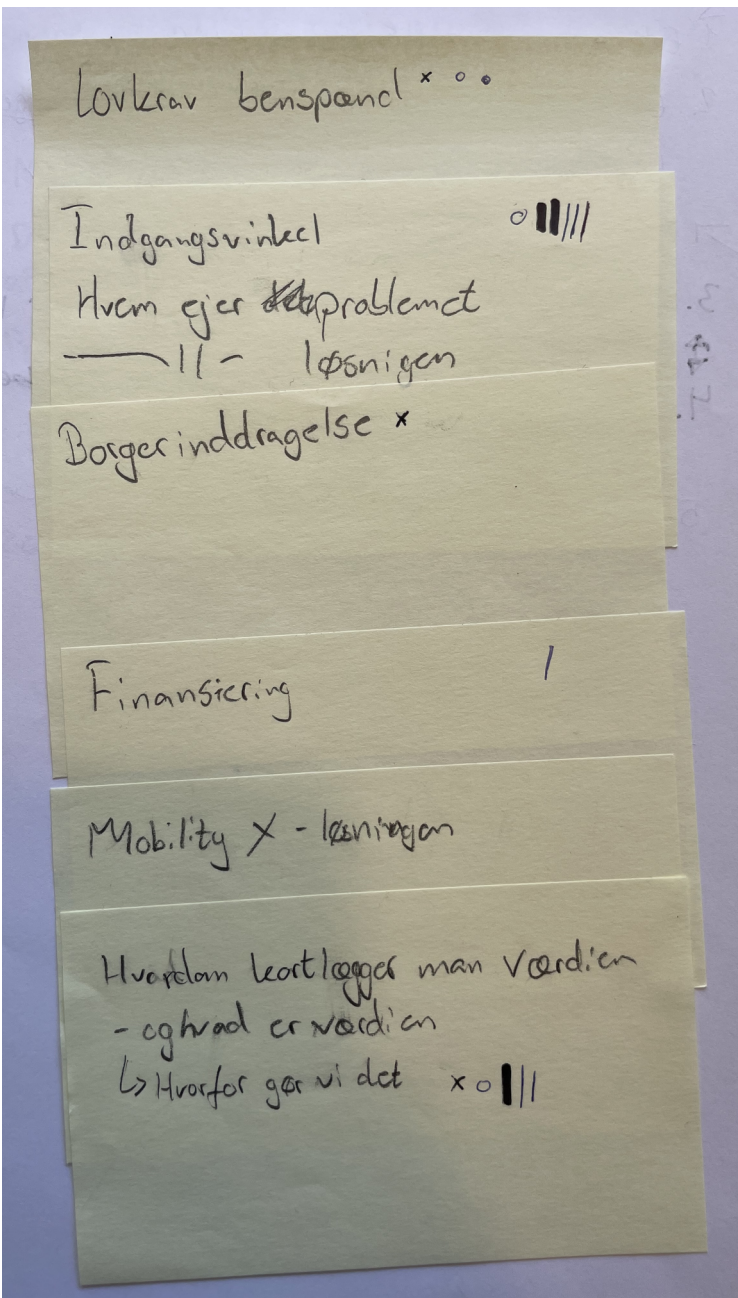 Lovkrav benspænd x o o o
Indgangsvinkel o |||||
Hvem ejer problemet
— || — løsnigen
Borgerinddragelse x
Finansiering |
Mobility X - løsningen
Hvordan kortlægger man værdien
- og hvad er værdien
↳ Hvorfor gør vi det x o |||